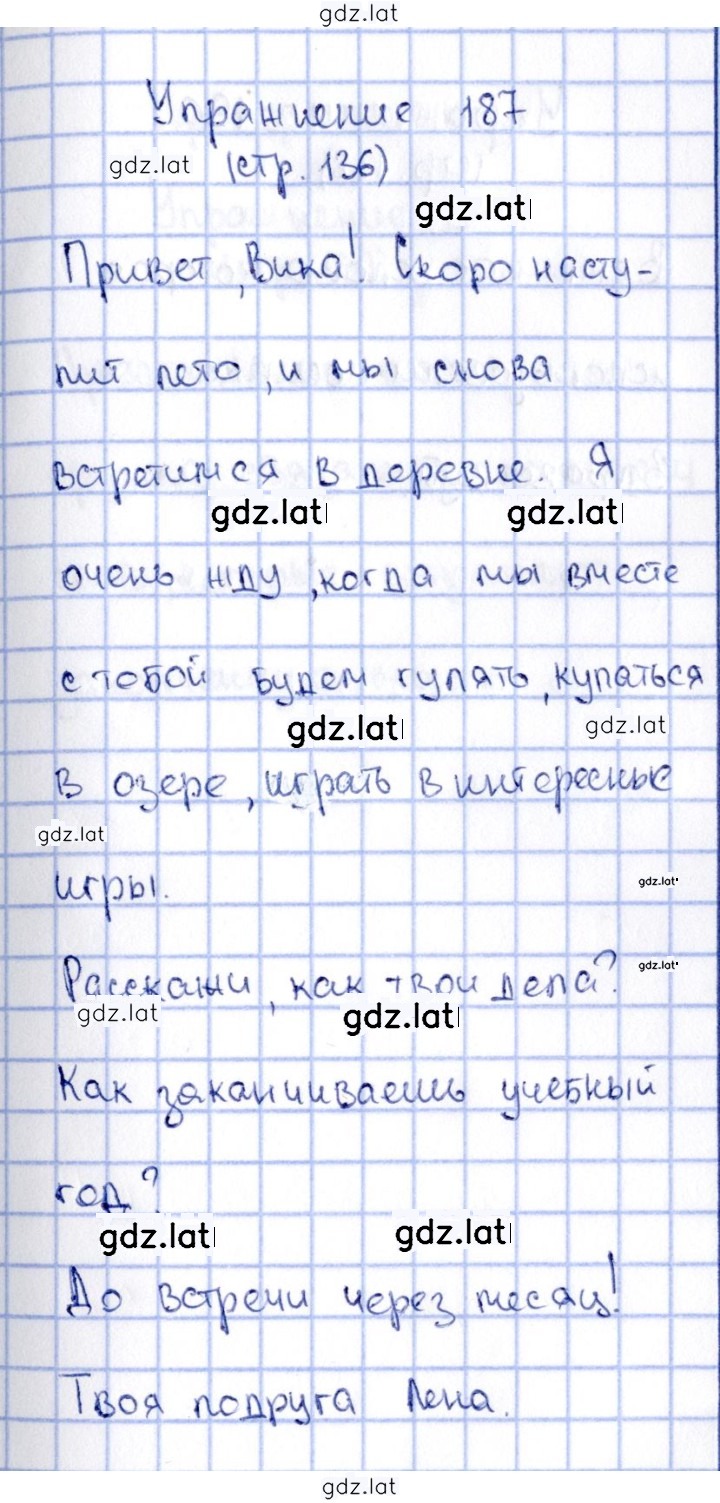 gdz.lat
Упражнение 187
gdz.lat (стр. 136)
gdz.lat
Привет, Вика! Скоро насту-
пит лето, и мы снова
встретимся в деревне. Я
gdz.lat gdz.lat
очень жду, когда мы вместе
с тобой будем гулять, купаться
gdz.lat gdz.lat
в озере, играть в интересные
gdz.lat
игры.
gdz.lat
Расскажи, как твои дела?
gdz.lat
gdz.lat gdz.lat
Как заканчиваешь учебный
год?
gdz.lat gdz.lat
До встречи через месяц!
Твоя подруга Лена.
gdz.lat